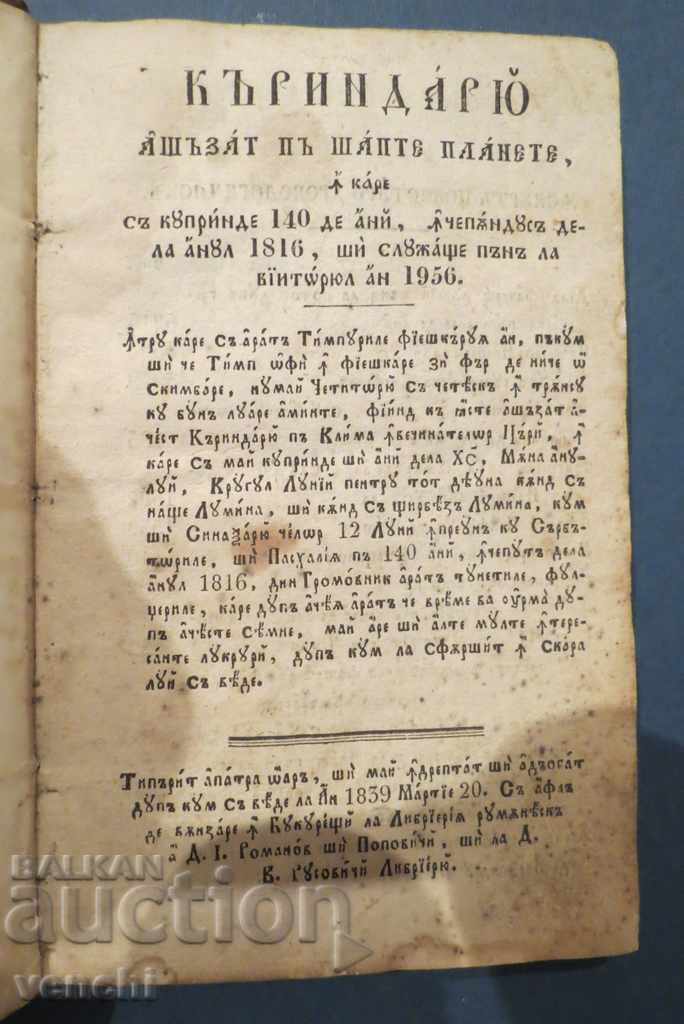 КЪРИНДА́РЮ
А҆ШЪЗА́Т ПЪ ША́ПТЕ ПЛА́НЕТЕ,
ꙟ҆ ка́ре
съ купри́нде 140 де а҆́нй, ꙟ҆чепѫ́ндусъ де-
ла а҆́нул 1816, шѝ служа́ще пън ла
вїито́рюл а҆́н 1956.
Ꙟ҆тру ка́ре с'ара́тъ Ти́мпуриле фїешкъруѧ ан, пъкум
шѝ че Ти́мп ѡ҆фѝ ꙟ҆ фїешка́ре зѝ фър де ни́че ѡ҆
скимба́ре, нума́й Четито́рю съ четѣск ꙟ҆ трѫ́нсу
ку бун лу́аре а҆ми́нте, фїи́нд къ ꙗ҆́сте а҆шъза́т а҆-
че́ст Къринда́рю пъ Кли́ма ꙟ҆вечинателѡр Цъ́рй, ꙟ҆
ка́ре съ май купри́нде шѝ а҆́ний дела Хс҃, Мѫ́на а҆́ну-
луй, Кру́гул Лу́ний пентру тот дѣу́на кѫ́нд съ
на́ще Луми́на, шѝ кѫ́нд съ щирбѣ́зъ Луми́на, кум
шѝ Синаѯа́рю че́лѡр 12 Лу́ний ꙟ҆преу́нъ ку Сърбъ-
то́риле, шѝ Пасха́лїѧ пъ 140 а҆́ний, ꙟ҆чепу́т дела
а҆́нул 1816, дин Громо́вник а҆ра́тъ ту́нетиле, фу́л-
џериле, ка́ре ду́пъ а҆че́ѧ а҆ра́тъ че врѣ́ме ва ѹ҆рма ду́-
пъ а҆че́сте се́мне, май а҆́ре шѝ а҆́лте му́лте ꙟ҆тере-
са́нте лу́крурй, ду́пъ кум ла сфѫрши́т ꙟ҆ Ска́ра
луй съ вѣ́де.
Типъри́т а҆па́тра ѡ҆аръ, шѝ май ꙟ҆дрепта́т шѝ а҆дъѡга́т
ду́пъ кум съ вѣ́де ла А҆́н 1839 Ма́ртїе 20. Съ а҆́флъ
де вѫнза́ре ꙟ҆ Букуре́щй ла Либрїерїѧ румѫнѣ́скъ
а҆̀ Д. І. Рома́нов шѝ Попови́чй, шѝ ла Д.
К. Русови́чй Либрїе́рю.
BALKAN
auction
venchi